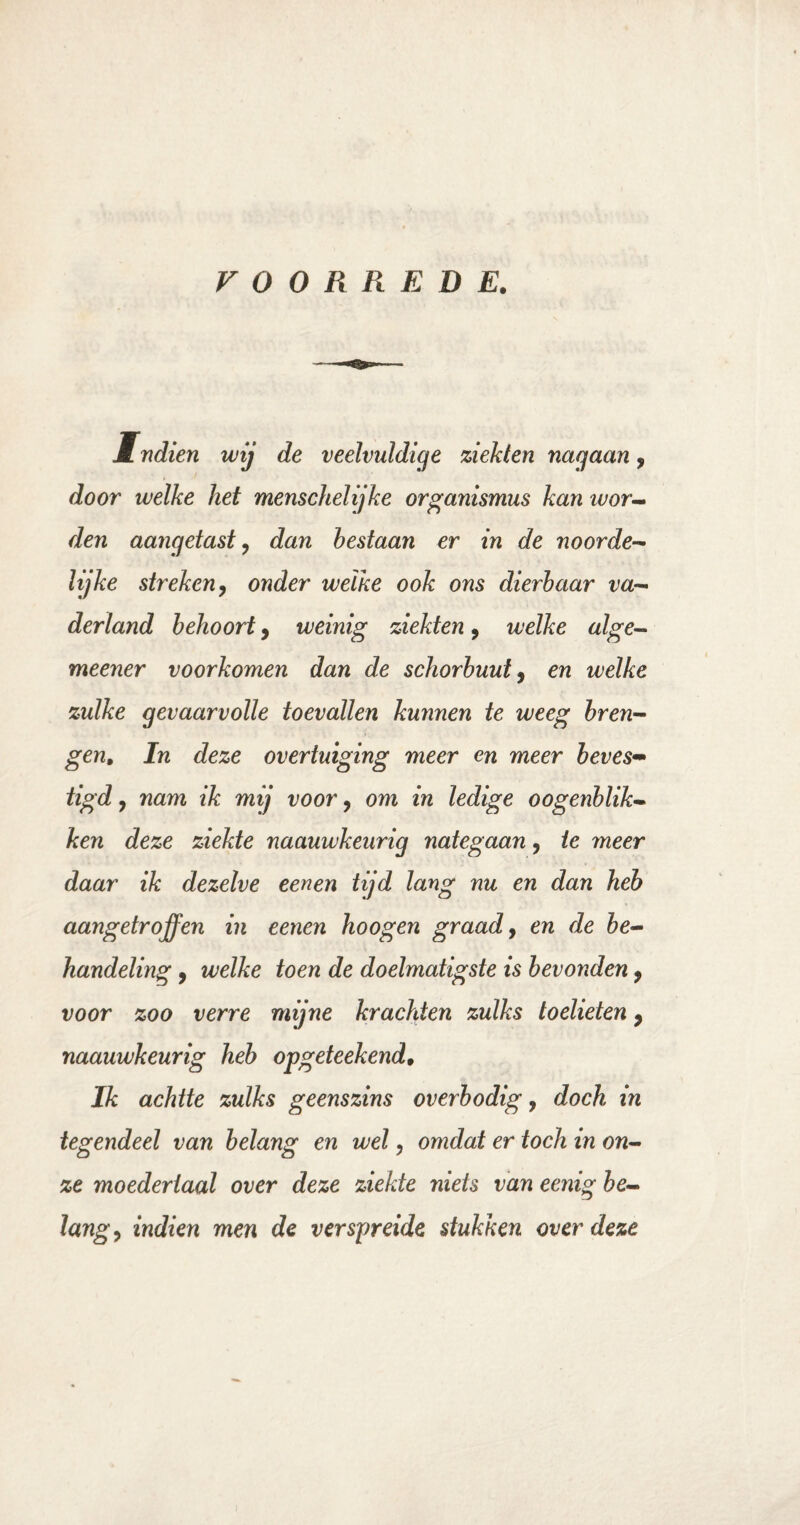 VOORREDE.
Indien wij de veelvuldige ziekten nagaan,
door welke het menschelijke organismus kan wor-
den aangetast, dan bestaan er in de noorde-
lijke streken, onder welke ook ons dierbaar va-
derland behoort, weinig ziekten, welke alge-
meener voorkomen dan de schorbuut, en welke
zulke gevaarvolle toevallen kunnen te weeg bren-
gen. In deze overtuiging meer en meer beves-
tigd, nam ik mij voor, om in ledige oogenblik-
ken deze ziekte naauwkeurig nategaan, te meer
daar ik dezelve eenen tijd lang nu en dan heb
aangetroffen in eenen hoogen graad, en de be-
handeling, welke toen de doelmatigste is bevonden,
voor zoo verre mijne krachten zulks toelieten,
naauwkeurig heb opgeteekend.
Ik achtte zulks geenszins overbodig, doch in
tegendeel van belang en wel, omdat er toch in on-
ze moedertaal over deze ziekte niets van eenig be-
lang, indien men de verspreide stukken over deze